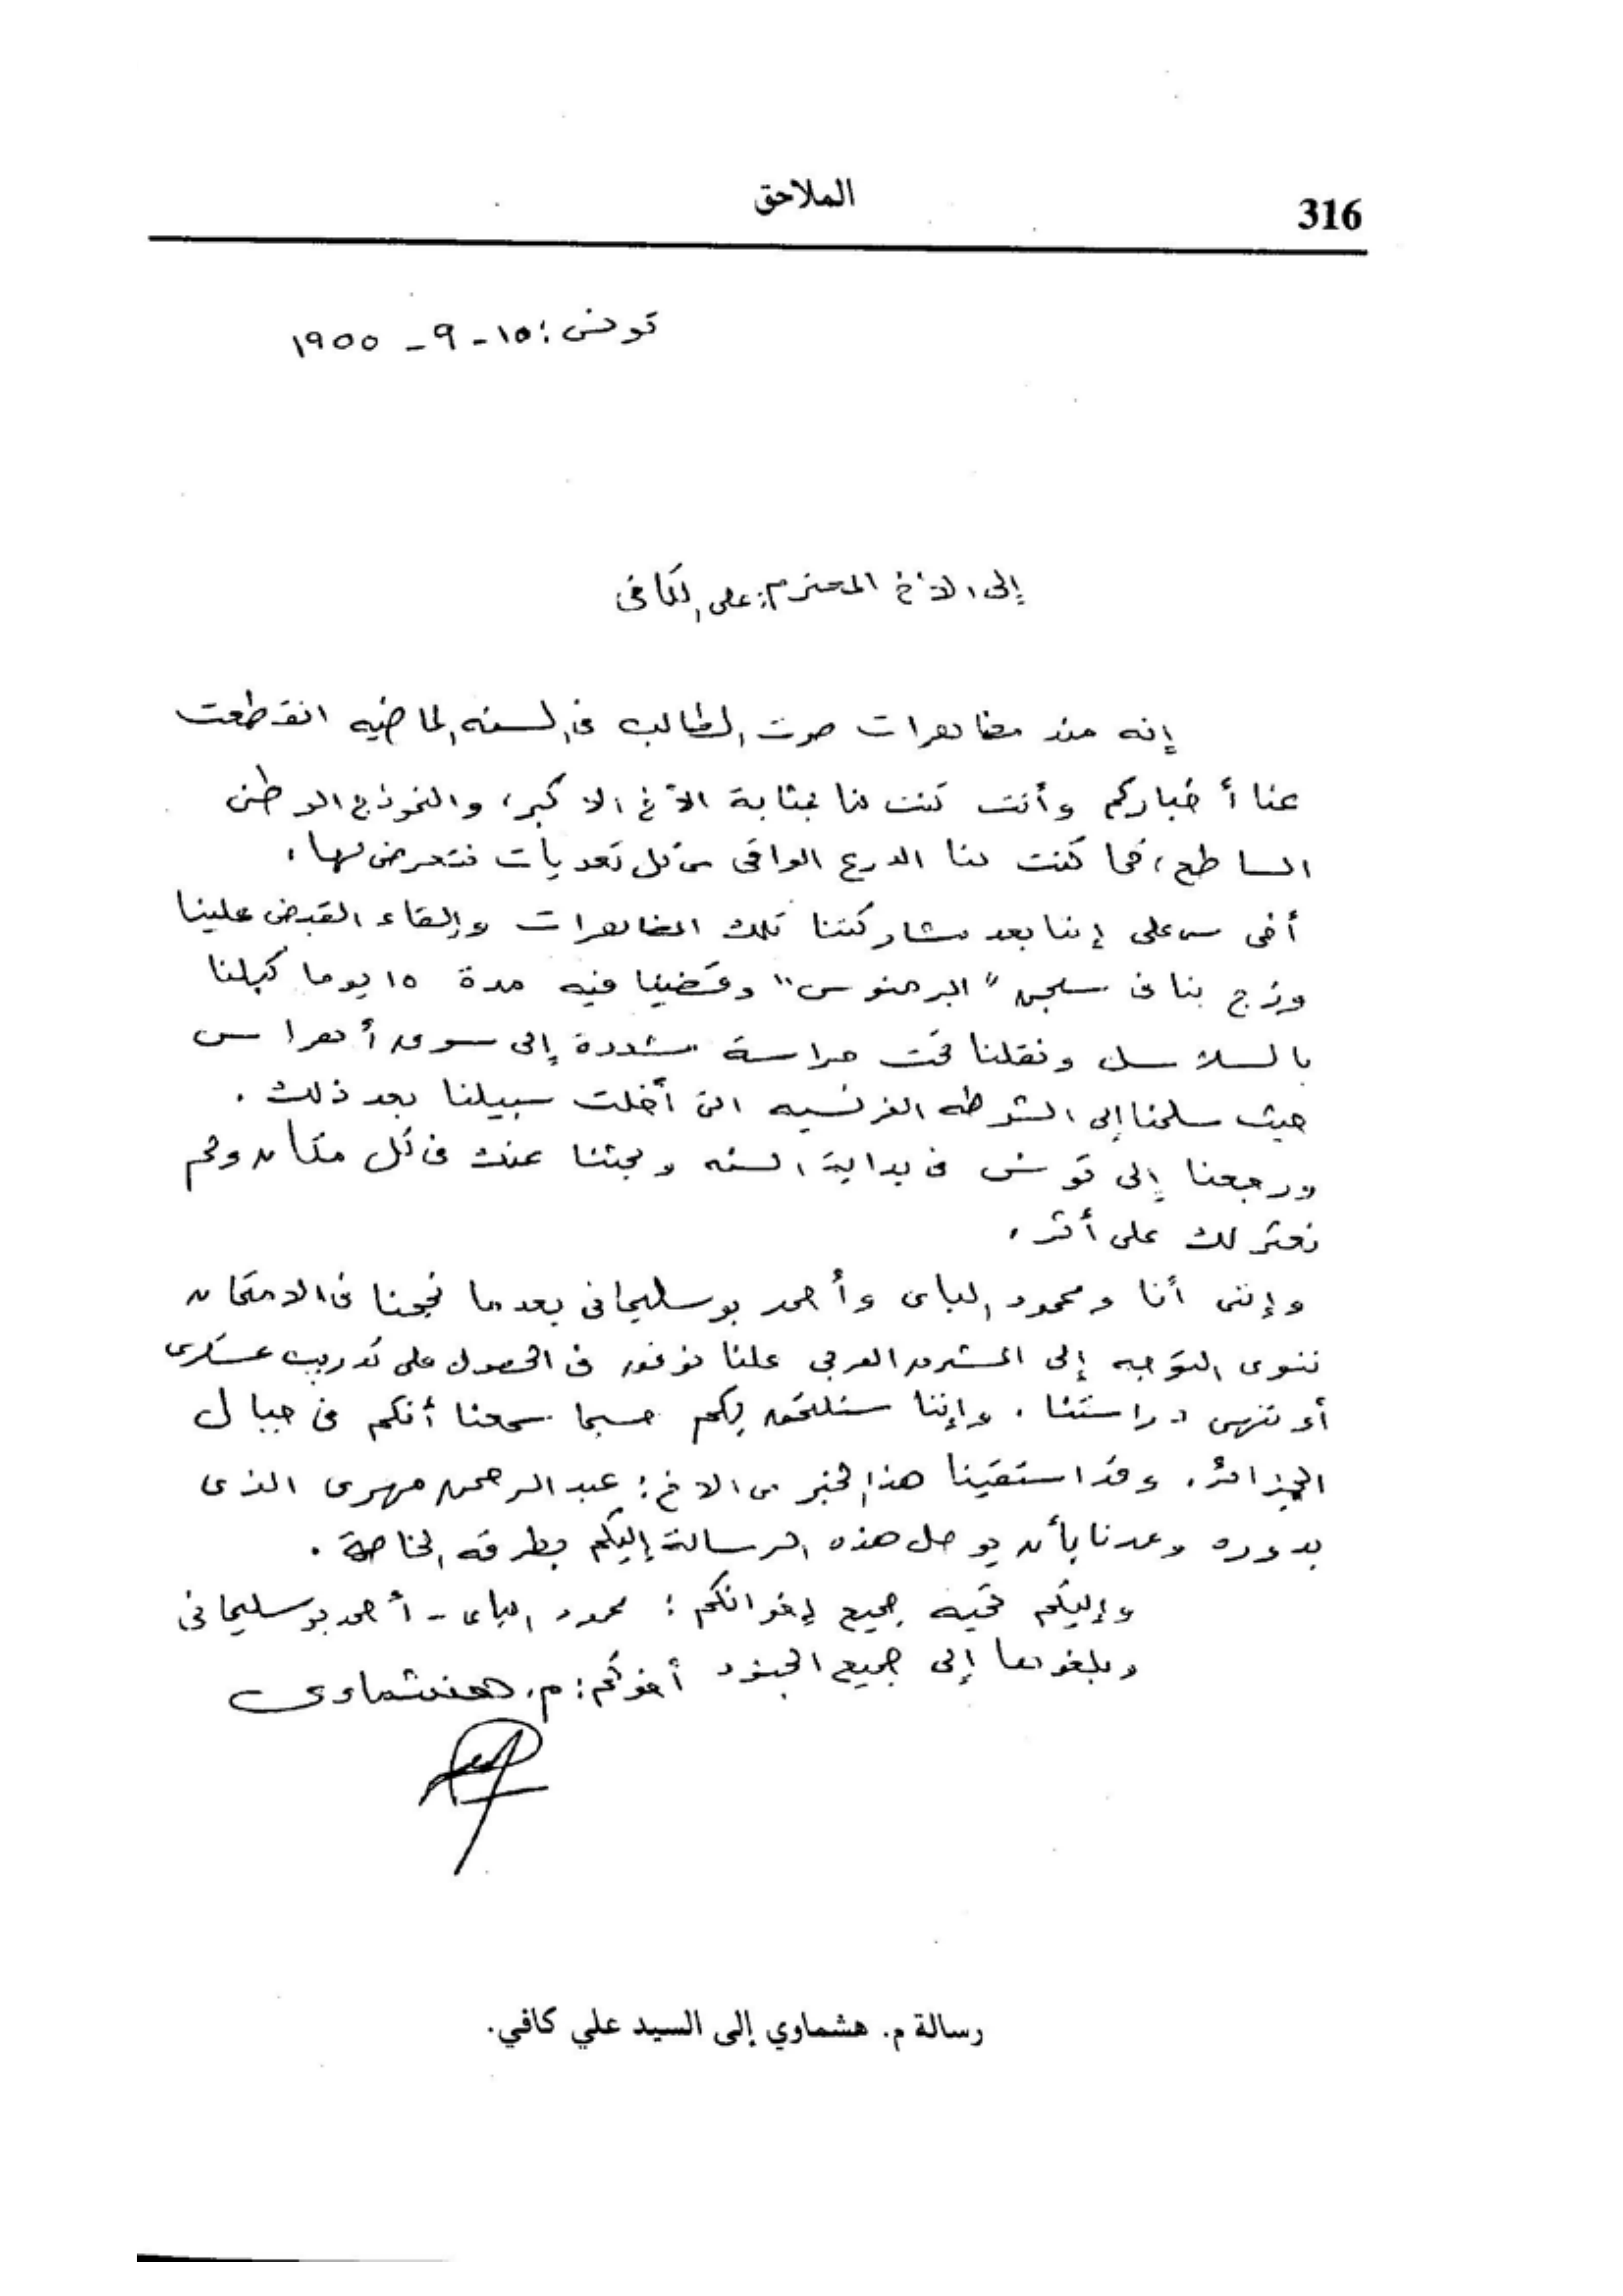 316
الملاحق
تونس: ١٥ - ٩ - ١٩٥٥
إلى الأخ المحترم: علي الكافي
إنه منذ مظاهرات صوت الطالب في السنه الماضيه انقطعت
عنا أخباركم وأنت كنت لنا بمثابة الأخ الاكبر، والنموذج الوطني
الساطع، كما كنت لنا الدرع الواقي من كل تعديات نتعرض لها.
أخي سي علي إننا بعد مشاركتنا تلك المظاهرات وإلقاء القبض علينا
وزج بنا في سجن "البرمنوس" وقضينا فيه مدة ١٥ يوما كبلنا
بالسلاسل ونقلنا تحت حراسة مشددة إلى سوق أهراس
حيث سلمنا إلى الشرطه الفرنسيه التي أخلت سبيلنا بعد ذلك.
ورجعنا إلى تونس في بداية السنه وبحثنا عنك في كل مكان ولم
نعثر لك على أثر.
وإنني أنا ومحمود الباي وأحمد بوسليماني بعدما نجحنا في الامتحان
ننوي التوجه إلى المشرق العربي علنا نوفق في الحصول على تدريب عسكري
أو ننهي دراستنا. وإننا سنلتحق بكم حسبما سمعنا أنكم في جبال
الجزائر. وقد استقينا هذا الخبر من الاخ: عبد الرحمن مهري الذي
بدوره وعدنا بأن يوصل هذه الرسالة إليكم بطرقه الخاصة.
وإليكم تحيه جميع إخوانكم: محمود الباي - أحمد بوسليماني
وبلغوها إلى جميع الجنود أخوكم: م. هشماوي
رسالة م. هشماوي إلى السيد علي كافي.